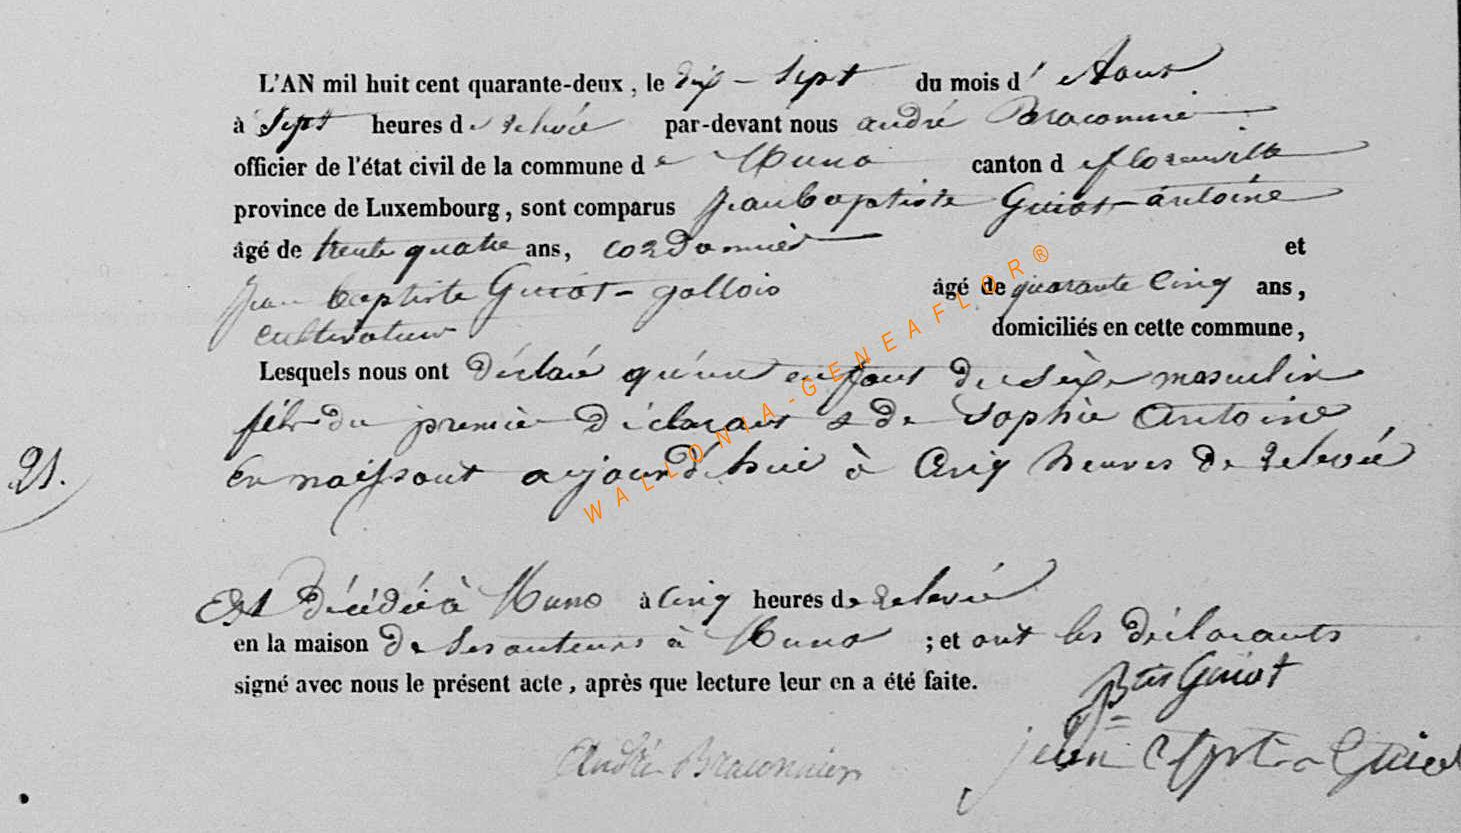 L'AN mil huit cent quarante-deux, le dix-sept du mois d'Aout
à Sept heures de relevée par-devant nous andré Braconnié
officier de l'état civil de la commune de Muno canton de florenville
province de Luxembourg, sont comparus jean baptiste Guiot-antoine
âgé de trente quatre ans, cordonnier et
jean baptiste Guiot-gallois âgé de quarante Cinq ans,
cultivateur domiciliés en cette commune,
Lesquels nous ont déclaré qu'un enfant du sexe masculin
fils du premier déclarant & de Sophie Antoine
en naissant aujourd'hui à Cinq heures de relevée
21.
Est décédé à Muno à Cinq heures de relevée
en la maison de ses auteurs à Muno ; et ont les déclarants
signé avec nous le présent acte, après que lecture leur en a été faite.
Guiot
André Braconnier
jean Guiot
WALLONIA-GENEAFLOR®